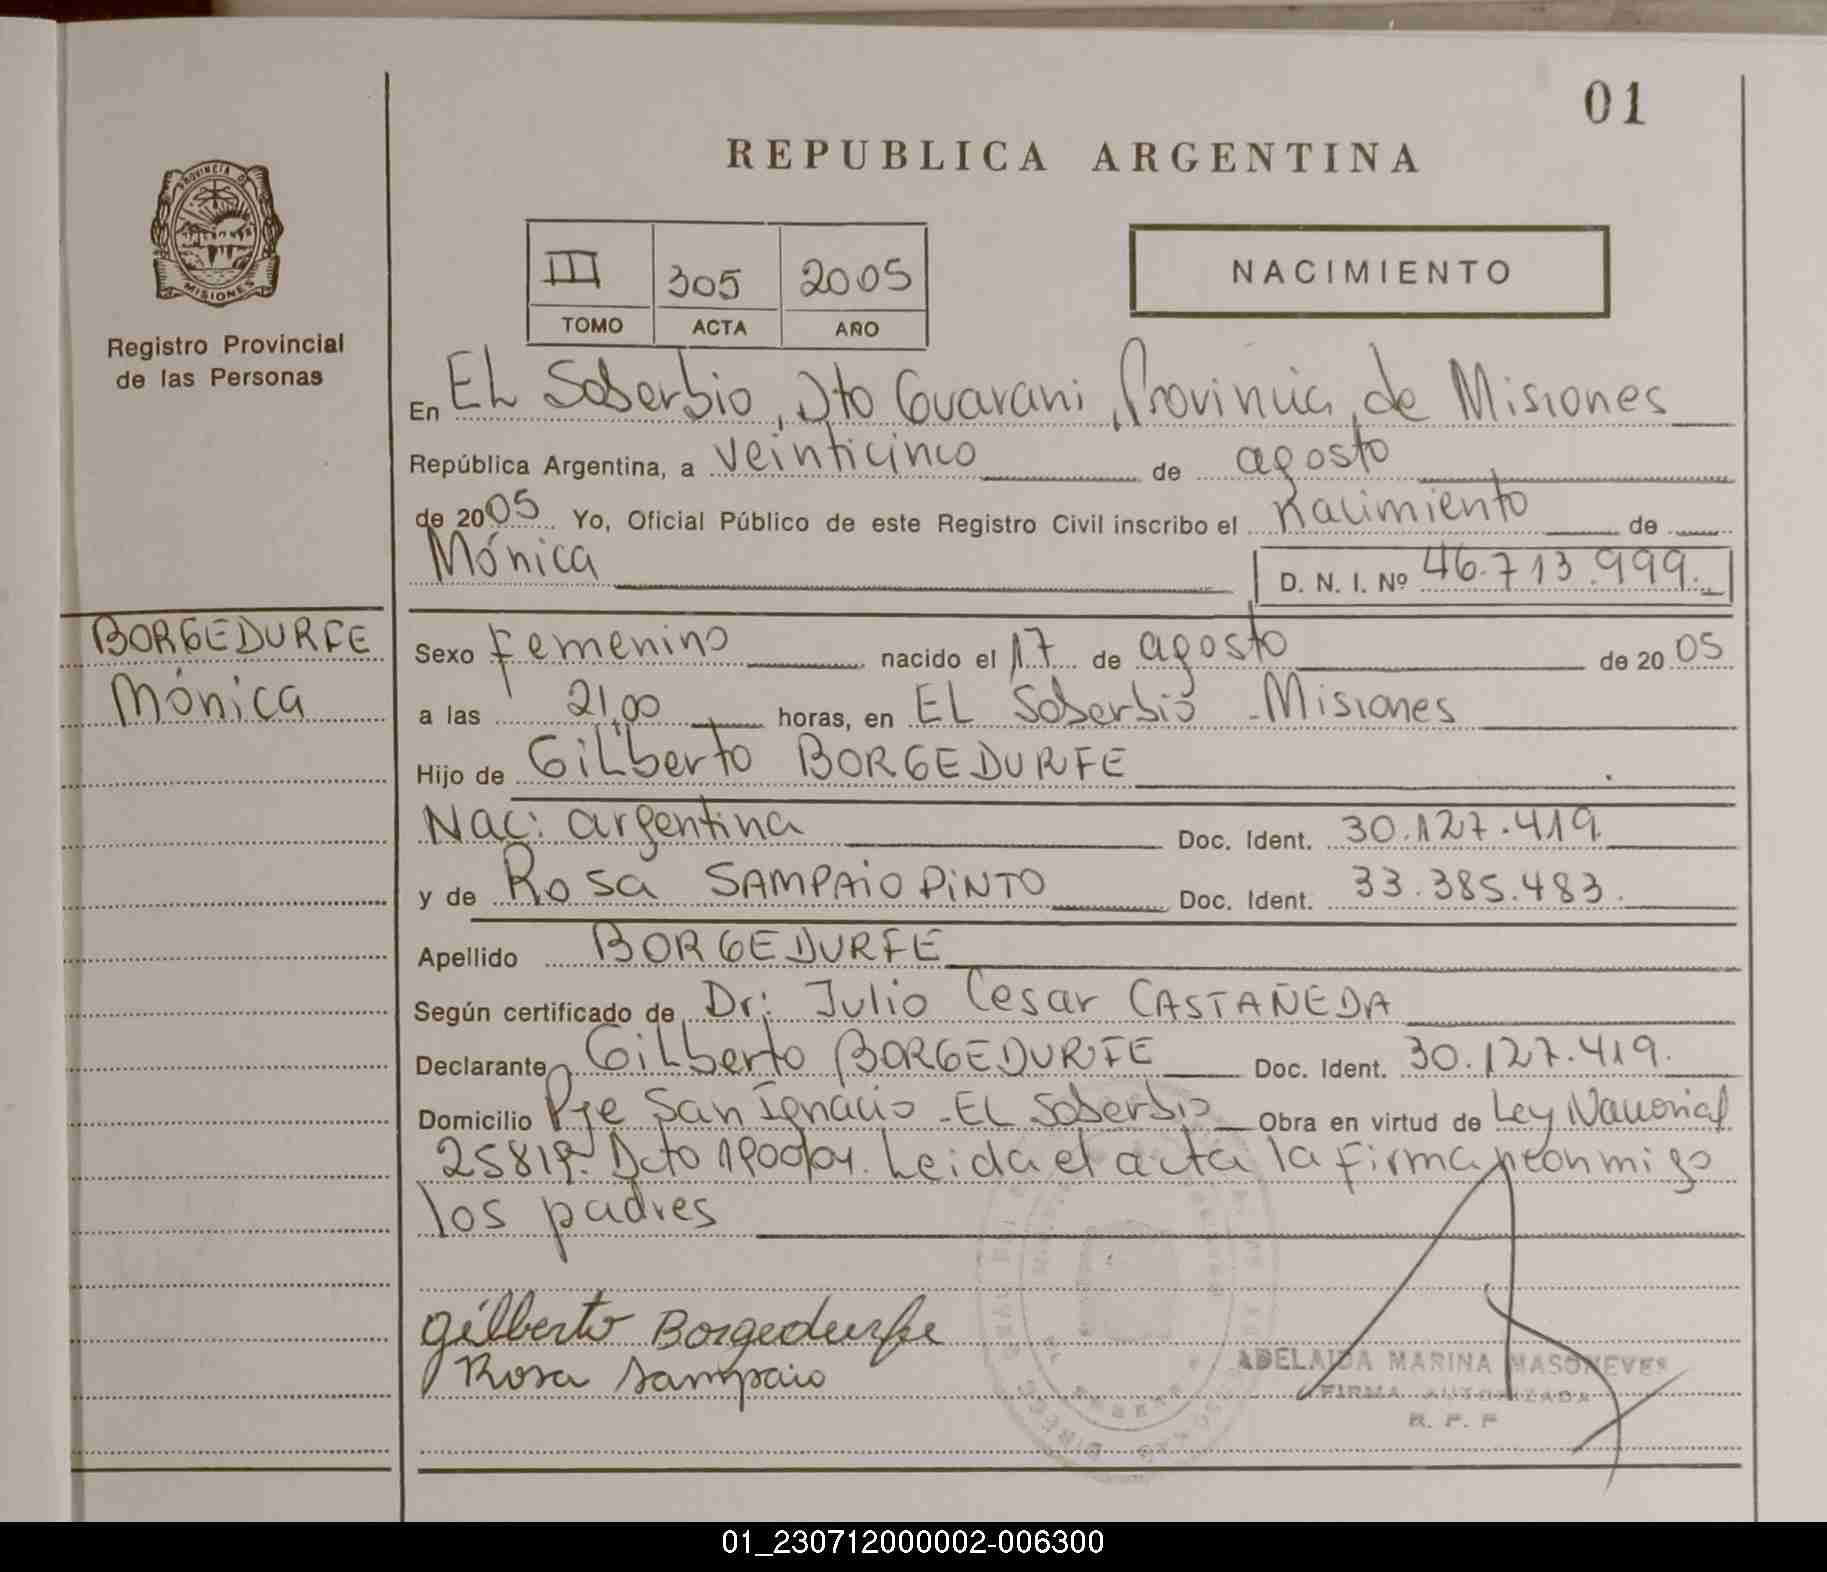 01
REPUBLICA ARGENTINA
PROVINCIA DE
MISIONES
Registro Provincial
de las Personas
III 305 2005
TOMO ACTA AÑO
NACIMIENTO
En EL Soberbio, Dto Guarani, Provincia de Misiones
República Argentina, a veinticinco de agosto
de 2005 Yo, Oficial Público de este Registro Civil inscribo el Nacimiento de
Mónica D. N. I. Nº 46.713.999.
BORGEDURFE
Mónica
Sexo Femenino nacido el 17 de agosto de 2005
a las 21,00 horas, en EL Soberbio - Misiones
Hijo de GiLberto BORGEDURFE
Nac: argentina Doc. Ident. 30.127.419.
y de Rosa SAMPAiO PiNTO Doc. Ident. 33.385.483.
Apellido BORGEDURFE
Según certificado de Dr: Julio Cesar CASTAÑEDA
Declarante GiLberto BORGEDURFE Doc. Ident. 30.127.419.
Domicilio Pje San Ignacio - EL Soberbio Obra en virtud de Ley Nacional
25819. Dcto 1900/04. Leida el acta la firman conmigo
los padres
Gilberto Borgedurfe
Rosa Sampaio
ADELAIDA MARINA MASONEVES
FIRMA AUTORIZADA
R. P. P
01_230712000002-006300